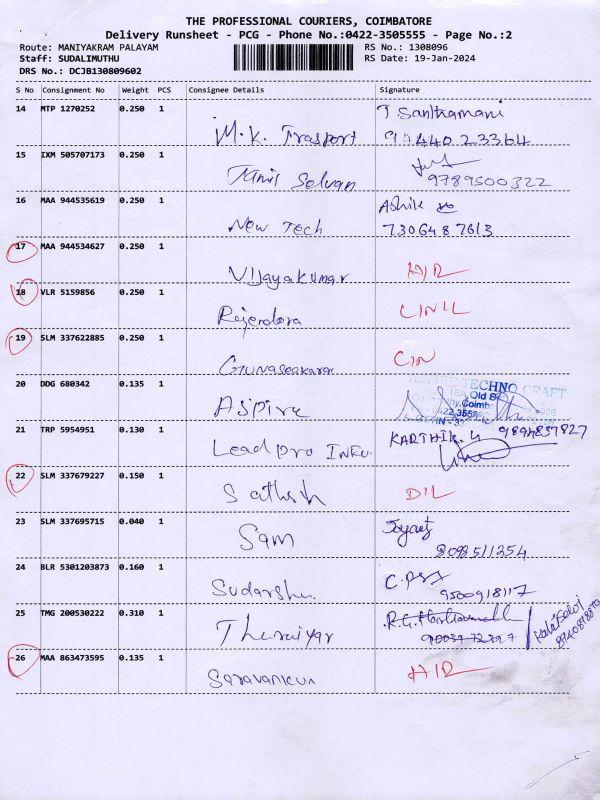 THE PROFESSIONAL COURIERS, COIMBATORE
Delivery Runsheet - PCG - Phone No.:0422-3505555 - Page No.:2
Route: MANIYAKRAM PALAYAM RS No.: 1308096
Staff: SUDALIMUTHU RS Date: 19-Jan-2024
DRS No.: DCJB130809602
S No Consignment No Weight PCS Consignee Details Signature
14 MTP 1270252 0.250 1 T Santhamani
M.K. Trasport 94440 23364
15 IXM 505707173 0.250 1
Tamil Selvan 9789500322
16 MAA 944535619 0.250 1 Ashik
New Tech 7306487613
17 MAA 944534627 0.250 1
Vijayakumar HIL
18 VLR 5159856 0.250 1
Rajendera CINIL
19 SLM 337622885 0.250 1
Gunaseakaran CIN
20 DDG 680342 0.135 1 TECHNO CRAFT
Aspire Old
21 TRP 5954951 0.130 1 KARTHIK.G 9894837827
Leadpro
22 SLM 337679227 0.150 1
Sathish DIL
23 SLM 337695715 0.040 1
Sam 8098511254
24 BLR 5301203873 0.160 1
Sudarshu. 9500918117
25 TMG 200530222 0.310 1
Thuraiyar 9003972397
26 MAA 863473595 0.135 1
Saravankum HIL